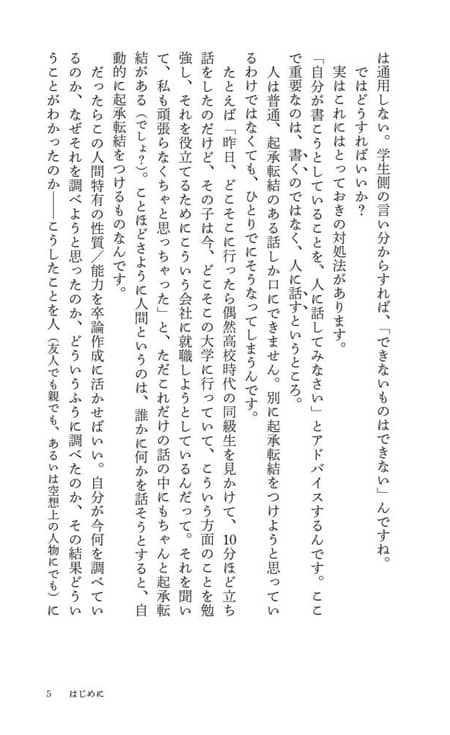 は通用しない。学生側の言い分からすれば、「できないものはできない」んですね。
ではどうすればいいか?
実はこれにはとっておきの対処法があります。
「自分が書こうとしていることを、人に話してみなさい」とアドバイスするんです。ここ
で重要なのは、書くのではなく、人に話すというところ。
人は普通、起承転結のある話しか口にできません。別に起承転結をつけようと思ってい
るわけではなくても、ひとりでにそうなってしまうんです。
たとえば「昨日、どこそこに行ったら偶然高校時代の同級生を見かけて、10分ほど立ち
話をしたのだけど、その子は今、どこそこの大学に行っていて、こういう方面のことを勉
強し、それを役立てるためにこういう会社に就職しようとしているんだって。それを聞い
て、私も頑張らなくちゃと思っちゃった」と、ただこれだけの話の中にもちゃんと起承転
結がある(でしょ?)。ことほどさように人間というのは、誰かに何かを話そうとすると、自
動的に起承転結をつけるものなんです。
だったらこの人間特有の性質/能力を卒論作成に活かせばいい。自分が今何を調べてい
るのか、なぜそれを調べようと思ったのか、どういうふうに調べたのか、その結果どうい
うことがわかったのか——こうしたことを人(友人でも親でも、あるいは空想上の人物にでも)に
5 はじめに